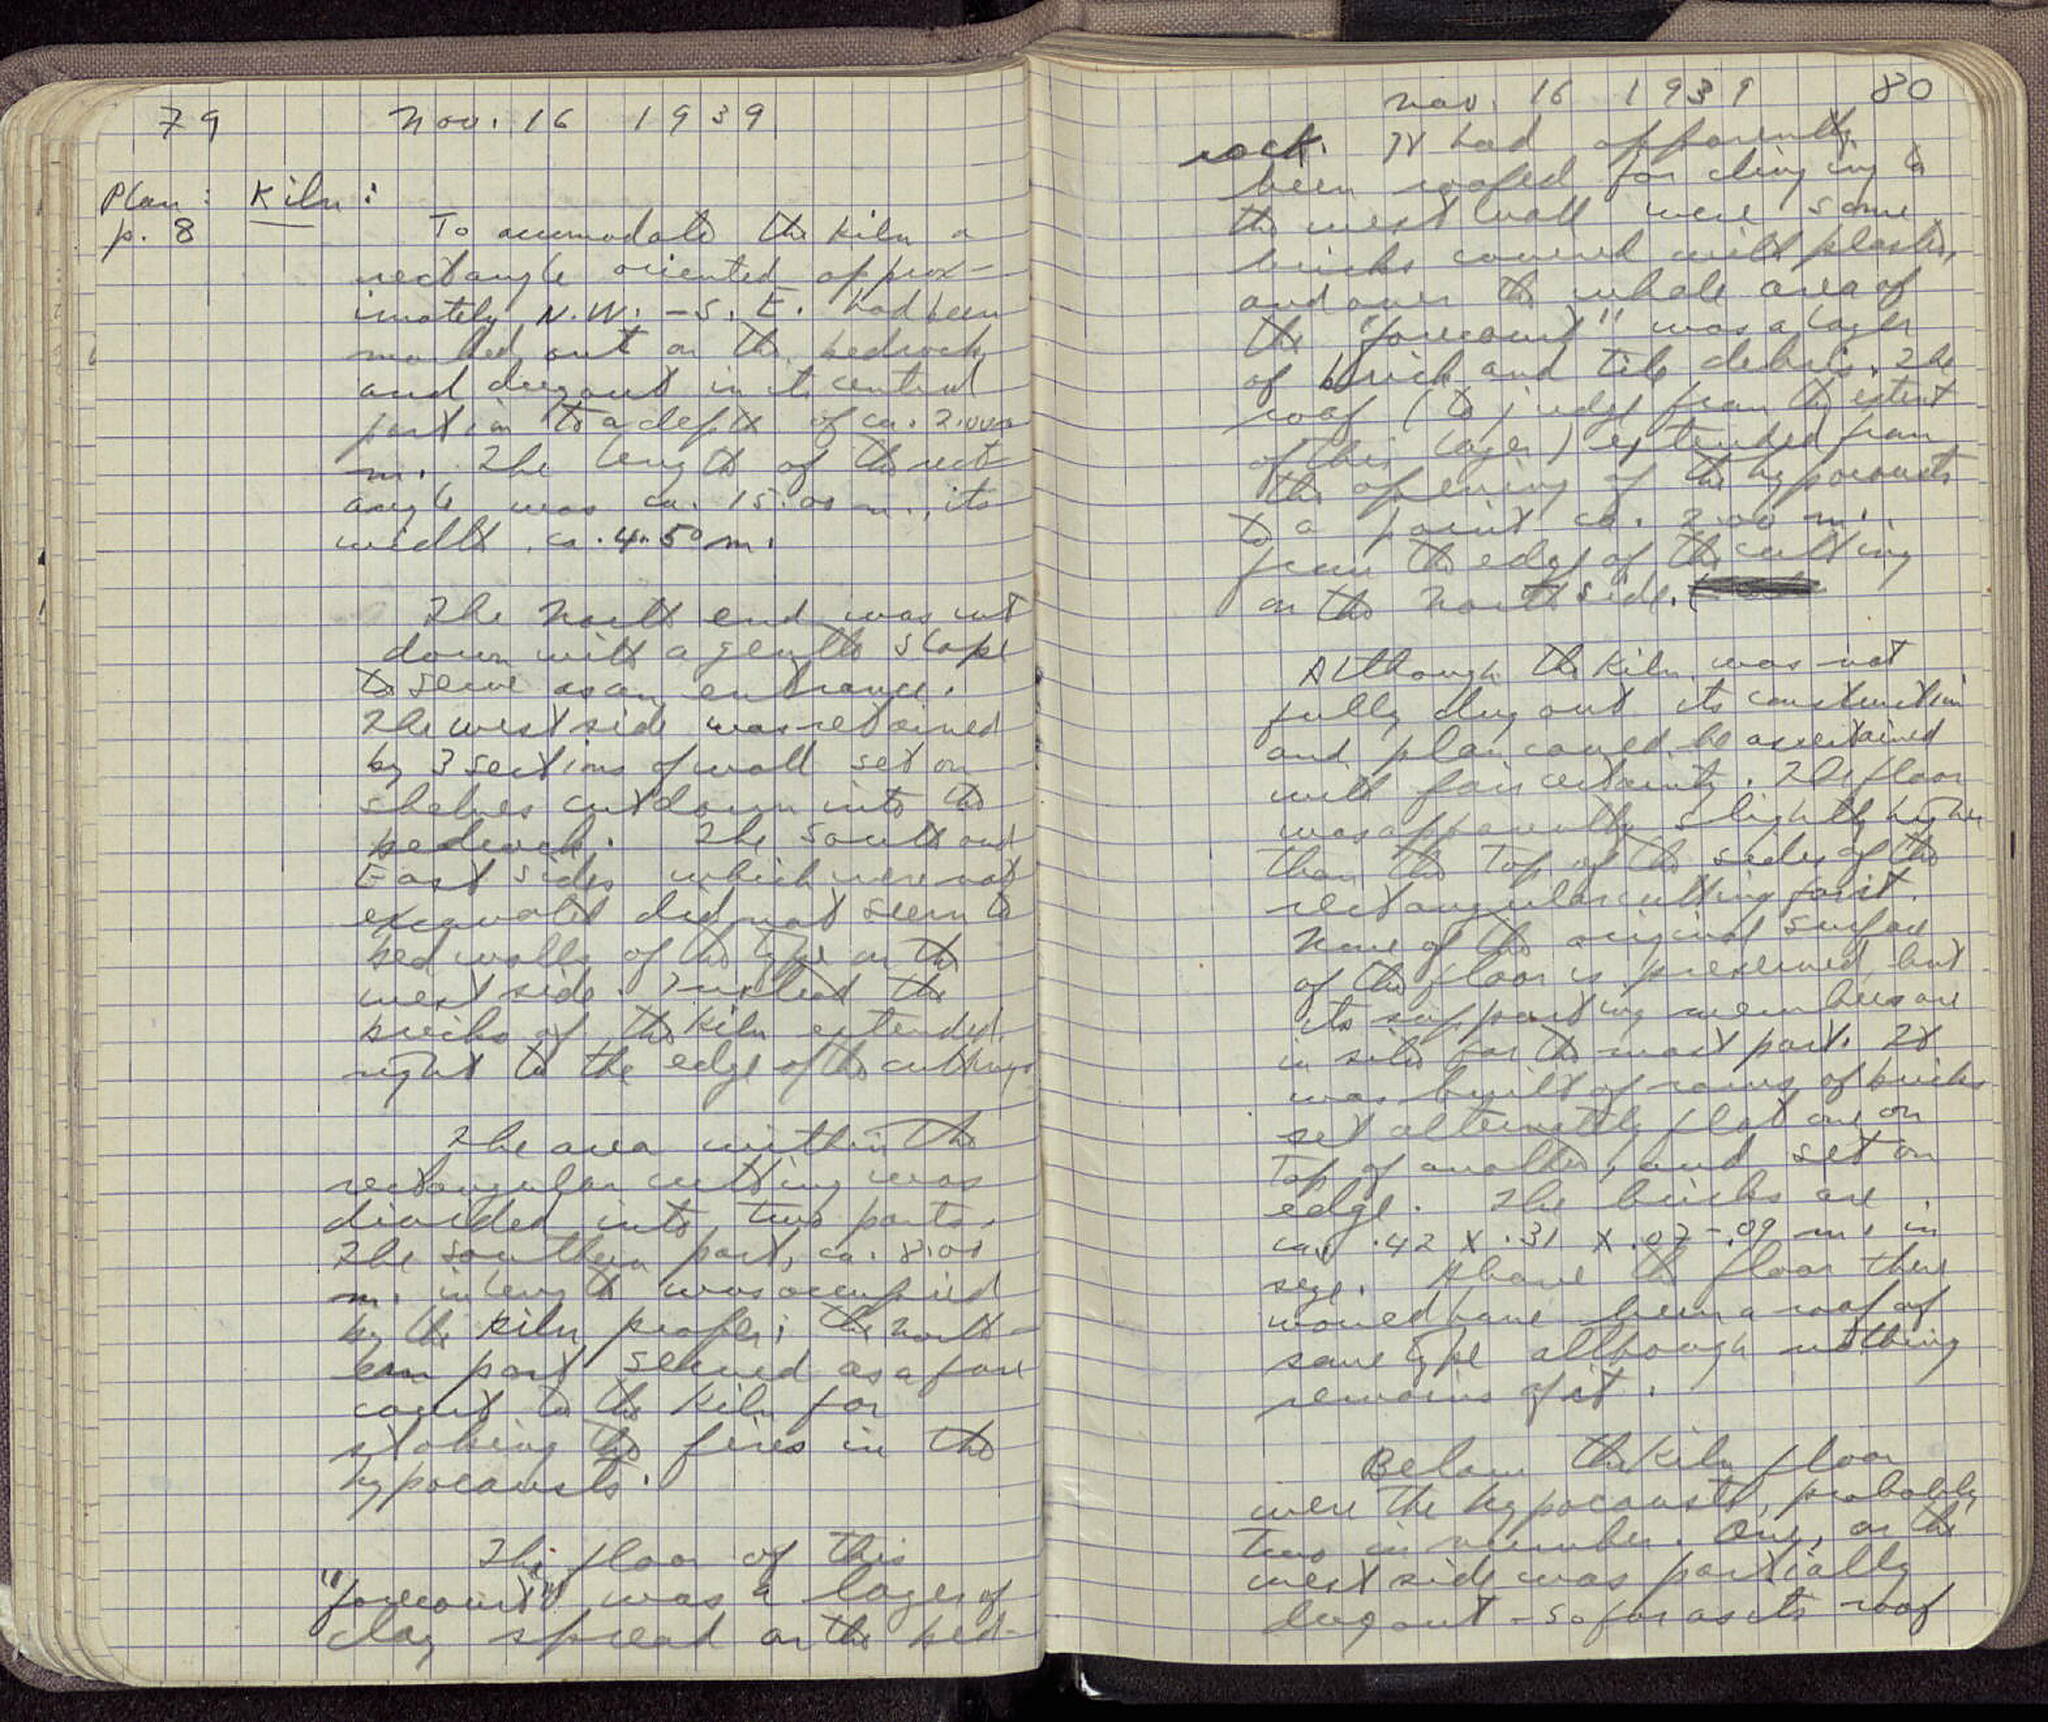 79 Nov. 16 1939
Plan: Kiln:
p. 8
To accomodate the kiln a
rectangle oriented approx-
imately N.W. - S.E. had been
marked out on the bedrock
and dug out in its central
portion to a depth of ca. 2.00
m. The length of the rect-
angle was ca. 15.00 m., its
width ca. 4.50 m.
The North end was cut
down with a gentle slope
to serve as an entrance.
The west side was retained
by 3 sections of wall set on
shelves cut down into the
bedrock. The South and
East sides which were not
excavated did not seem to
hed walls of the type on the
west side. Instead the
bricks of the kiln extended
right to the edge of the cuttings
The area within the
rectangular cutting was
divided into two parts.
The southern part, ca. 8.00
m. in length was occupied
by the kiln proper; the north-
ern part served as a fore
court to the kiln for
stoking the fires in the
hypocausts.
The floor of this
"forecourt" was a layer of
clay spread on the bed-
Nov. 16 1939 80
rock. It had apparently
been roofed for clinging to
the west wall were some
bricks covered with plaster,
and over the whole area of
the "forecourt" was a layer
of brick and tile debris. The
roof (to judge from the extent
of this layer) extended from
the opening of the hypocausts
to a point ca. 2.00 m.
from the edge of the cutting
on the North side.
Although the kiln was not
fully dug out its construction
and plan could be ascertained
with fair certainty. The floor
was apparently slightly higher
than the top of the sides of the
rectangular cutting for it.
None of the original surface
of the floor is preserved, but
its supporting members are
in situ for the most part. It
was built of rows of bricks
set alternately flat one on
top of another, and set on
edge. The bricks are
ca. .42 x .31 x .07-.09 m. in
size. Above the floor there
would have been a roof of
same type although nothing
remains of it.
Below the kiln floor
were the hypocausts, probably
two in number. One, on the
west side was partially
dug out - so far as its roof